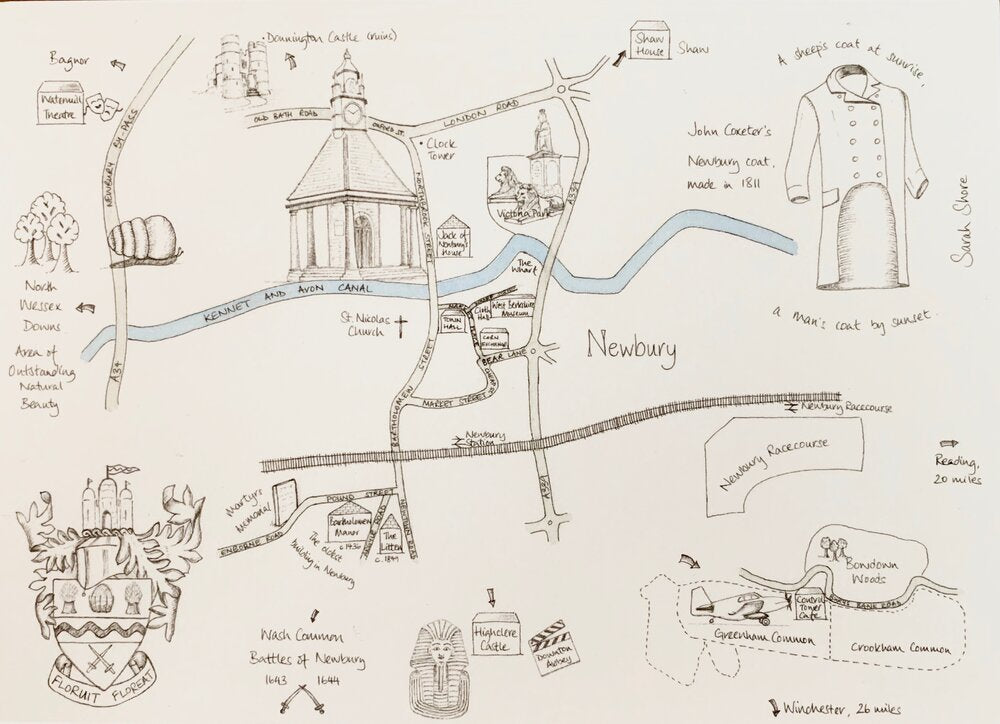 Bagnor
Watermill
Theatre
Donnington Castle (ruins)
Shaw
House
Shaw
A sheep's coat at sunrise,
OLD BATH ROAD
OXFORD ST.
LONDON ROAD
Clock
Tower
NEWBURY BY-PASS
NORTHBROOK STREET
A339
Victoria Park
John Coxeter's
Newbury coat,
made in 1811
Sarah Shore
Jack of
Newbury's
House
The
Wharf
North
Wessex
Downs
Area of
Outstanding
Natural
Beauty
KENNET AND AVON CANAL
A34
St. Nicolas
Church
TOWN
HALL
Cloth
Hall
West Berkshire
Museum
CORN
EXCHANGE
BEAR LANE
a man's coat by sunset.
Newbury
MARKET STREET
BARTHOLOMEW STREET
Newbury
Station
Newbury Racecourse
Newbury Racecourse
Reading,
20 miles
A339
Martyrs
Memorial
POUND STREET
ENBORNE ROAD
Bartholomew
Manor
c.1436
The oldest
building in Newbury
The
Litten
NEWTOWN ROAD
Bowdown
Woods
Control
Tower
Cafe
BURYS BANK ROAD
Greenham Common
Crookham Common
Wash Common
Battles of Newbury
1643 1644
Highclere
Castle
Downton
Abbey
FLORUIT FLOREAT
Winchester, 26 miles